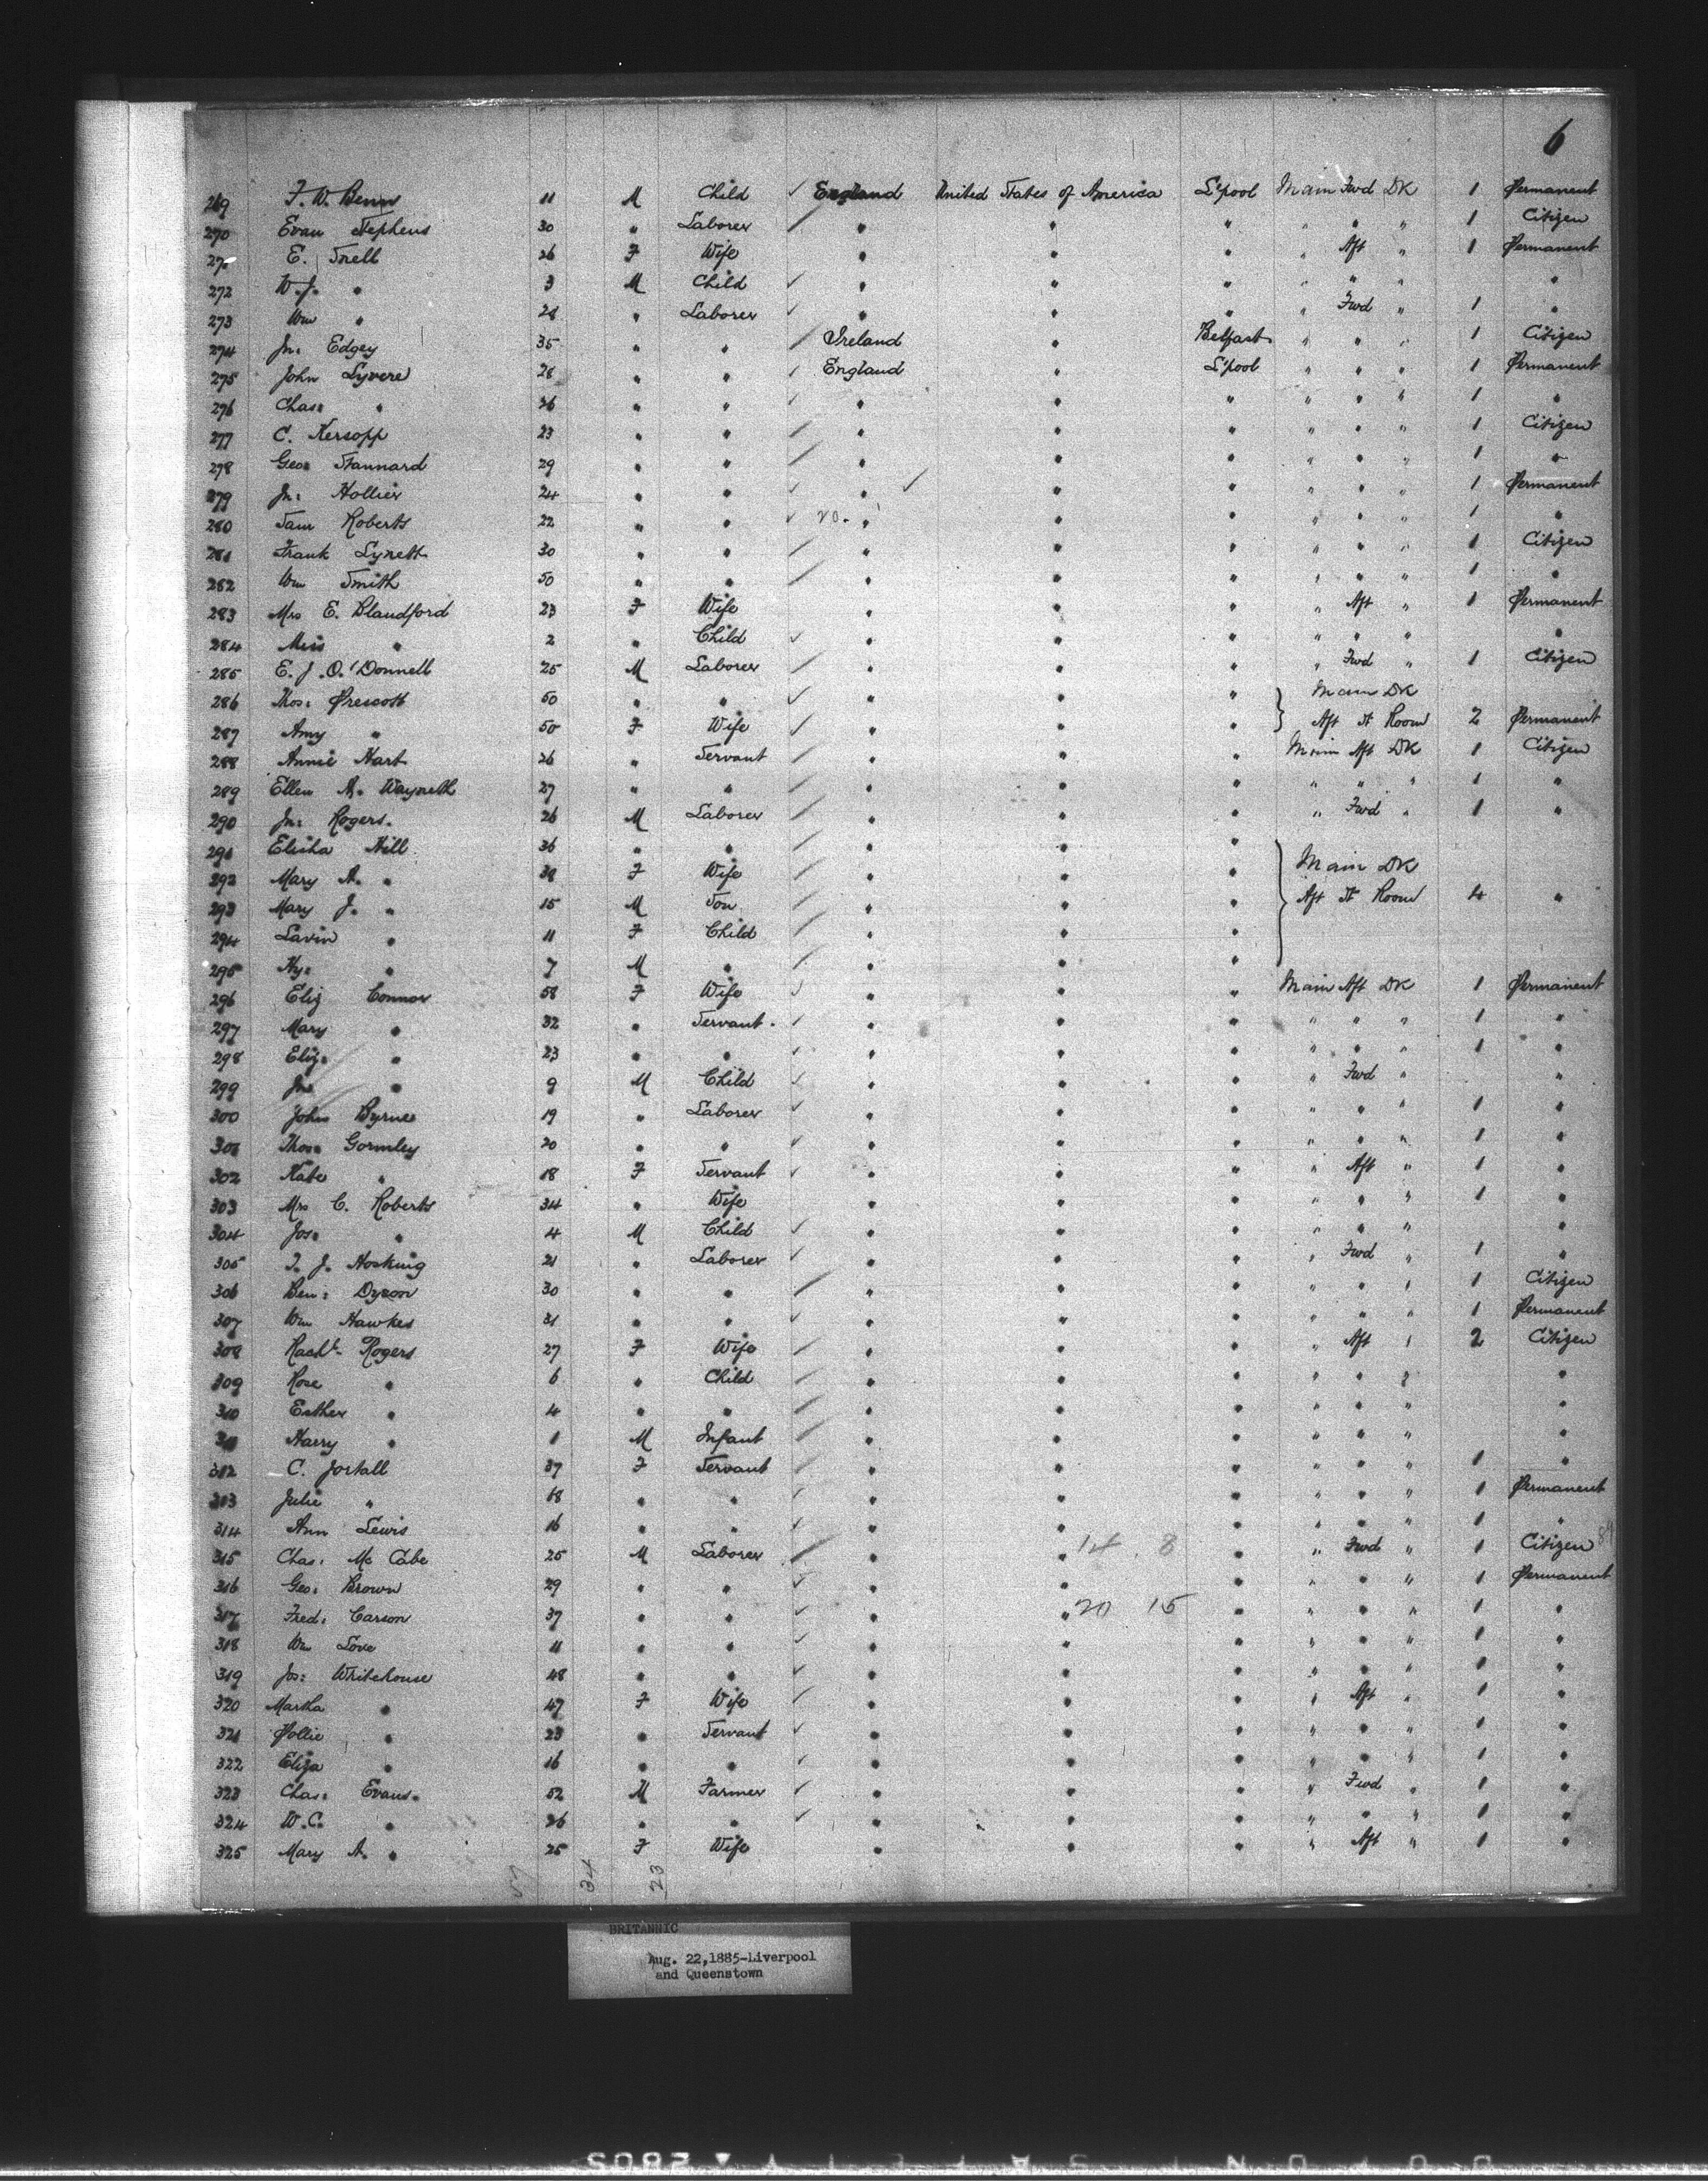 6
269 F. W. Benn 11 M Child ✓ England United States of America L'pool Main Fwd DK 1 Permanent
270 Evan Stephens 30 " Laborer / " " " " " " 1 Citizen
27 E. Snell 26 F Wife " " " " Aft " 1 Permanent
272 W. J. " 3 M Child ✓ " " " " " " "
273 Wm " 28 " Laborer ✓ " " " " Fwd " 1 "
274 Jn: Edgey 35 " " / Ireland " Belfast " " " 1 Citizen
275 John Lyvere 28 " " ✓ England " L'pool " " " 1 Permanent
276 Chas: " 26 " " ✓ " " " " " " 1 "
277 C. Kersopp 23 " " / " " " " " " 1 Citizen
278 Geo: Stannard 29 " " / " " " " " " 1 "
279 Jn: Hollier 24 " " ✓ " ✓ " " " " " 1 Permanent
280 Sam Roberts 22 " " ✓ 20. " " " " " " 1 "
281 Frank Lynett 30 " " / " " " " " " 1 Citizen
282 Wm Smith 50 " " / " " " " " " 1 "
283 Mrs E. Blandford 23 F Wife " " " " Aft " 1 Permanent
284 Miss " 2 " Child ✓ " " " " " " "
285 E. J. O'Donnell 25 M Laborer / " " " " Fwd " 1 Citizen
286 Thos: Prescott 50 " " ✓ " " " } Main DK
287 Amy " 50 F Wife ✓ " " " Aft St Room 2 Permanent
288 Annie Hart 26 " Servant / " " " Main Aft DK 1 Citizen
289 Ellen A. 27 " " / " " " " " " 1 "
290 Jn: Rogers. 26 M Laborer / " " " " Fwd " 1 "
291 Elisha Hill 36 " " / " " "
292 Mary A. " 38 F Wife / " " " } Main DK
293 Mary J. " 15 M Son / " " " Aft St Room 4 "
294 Lavin " 11 F Child / " " "
295 Hy: " 7 M " / " " "
296 Eliz Connor 58 F Wife ✓ " " " Main Aft DK 1 Permanent
297 Mary " 32 " Servant. ✓ " " " " " " 1 "
298 Eliz. " 23 " " ✓ " " " " " " 1 "
299 Jn: " 9 M Child ✓ " " " " Fwd " "
300 John Byrne 19 " Laborer ✓ " " " " " " 1 "
301 Thos: Gormley 20 " " ✓ " " " " " " 1 "
302 Kate " 18 F Servant ✓ " " " " Aft " 1 "
303 Mrs C. Roberts 34 " Wife " " " " " " 1 "
304 Jos: " 4 M Child ✓ " " " " " " "
305 T. J. Hosking 21 " Laborer ✓ " " " " Fwd " 1 "
306 Ben: Dyson 30 " " / " " " " " " 1 Citizen
307 Wm Hawkes 31 " " ✓ " " " " " " 1 Permanent
308 Rachl. Rogers 27 F Wife / " " " " Aft " 2 Citizen
309 Rose " 6 " Child / " " " " " " "
310 Esther " 4 " " / " " " " " " "
311 Harry " 1 M Infant / " " " " " " "
312 C. Jortall 37 F Servant / " " " " " " 1 "
313 Julie " 18 " " ✓ " " " " " " 1 Permanent
314 Ann Lewis 16 " " ✓ " " " " " " 1 "
315 Chas: Mc Cabe 25 M Laborer / " " 14. 8 " " Fwd " 1 Citizen
316 Geo: Brown 29 " " ✓ " " " " " " 1 Permanent
317 Fred: Carson 37 " " ✓ " " 20 15 " " " " 1 "
318 Wm Love 11 " " ✓ " " " " " " 1 "
319 Jos: Whitehouse 48 " " ✓ " " " " " " 1 "
320 Martha " 47 F Wife ✓ " " " " Aft " 1 "
321 Pollie " 23 " Servant ✓ " " " " " " 1 "
322 Eliza " 16 " " ✓ " " " " " " 1 "
323 Chas: Evans. 52 M Farmer ✓ " " " " Fwd " 1 "
324 W. C. " 26 " " ✓ " " " " " " 1 "
325 Mary A. " 25 F Wife " " " " Aft " 1 "
57 34 23
BRITANNIC
Aug. 22,1885-Liverpool
and Queenstown